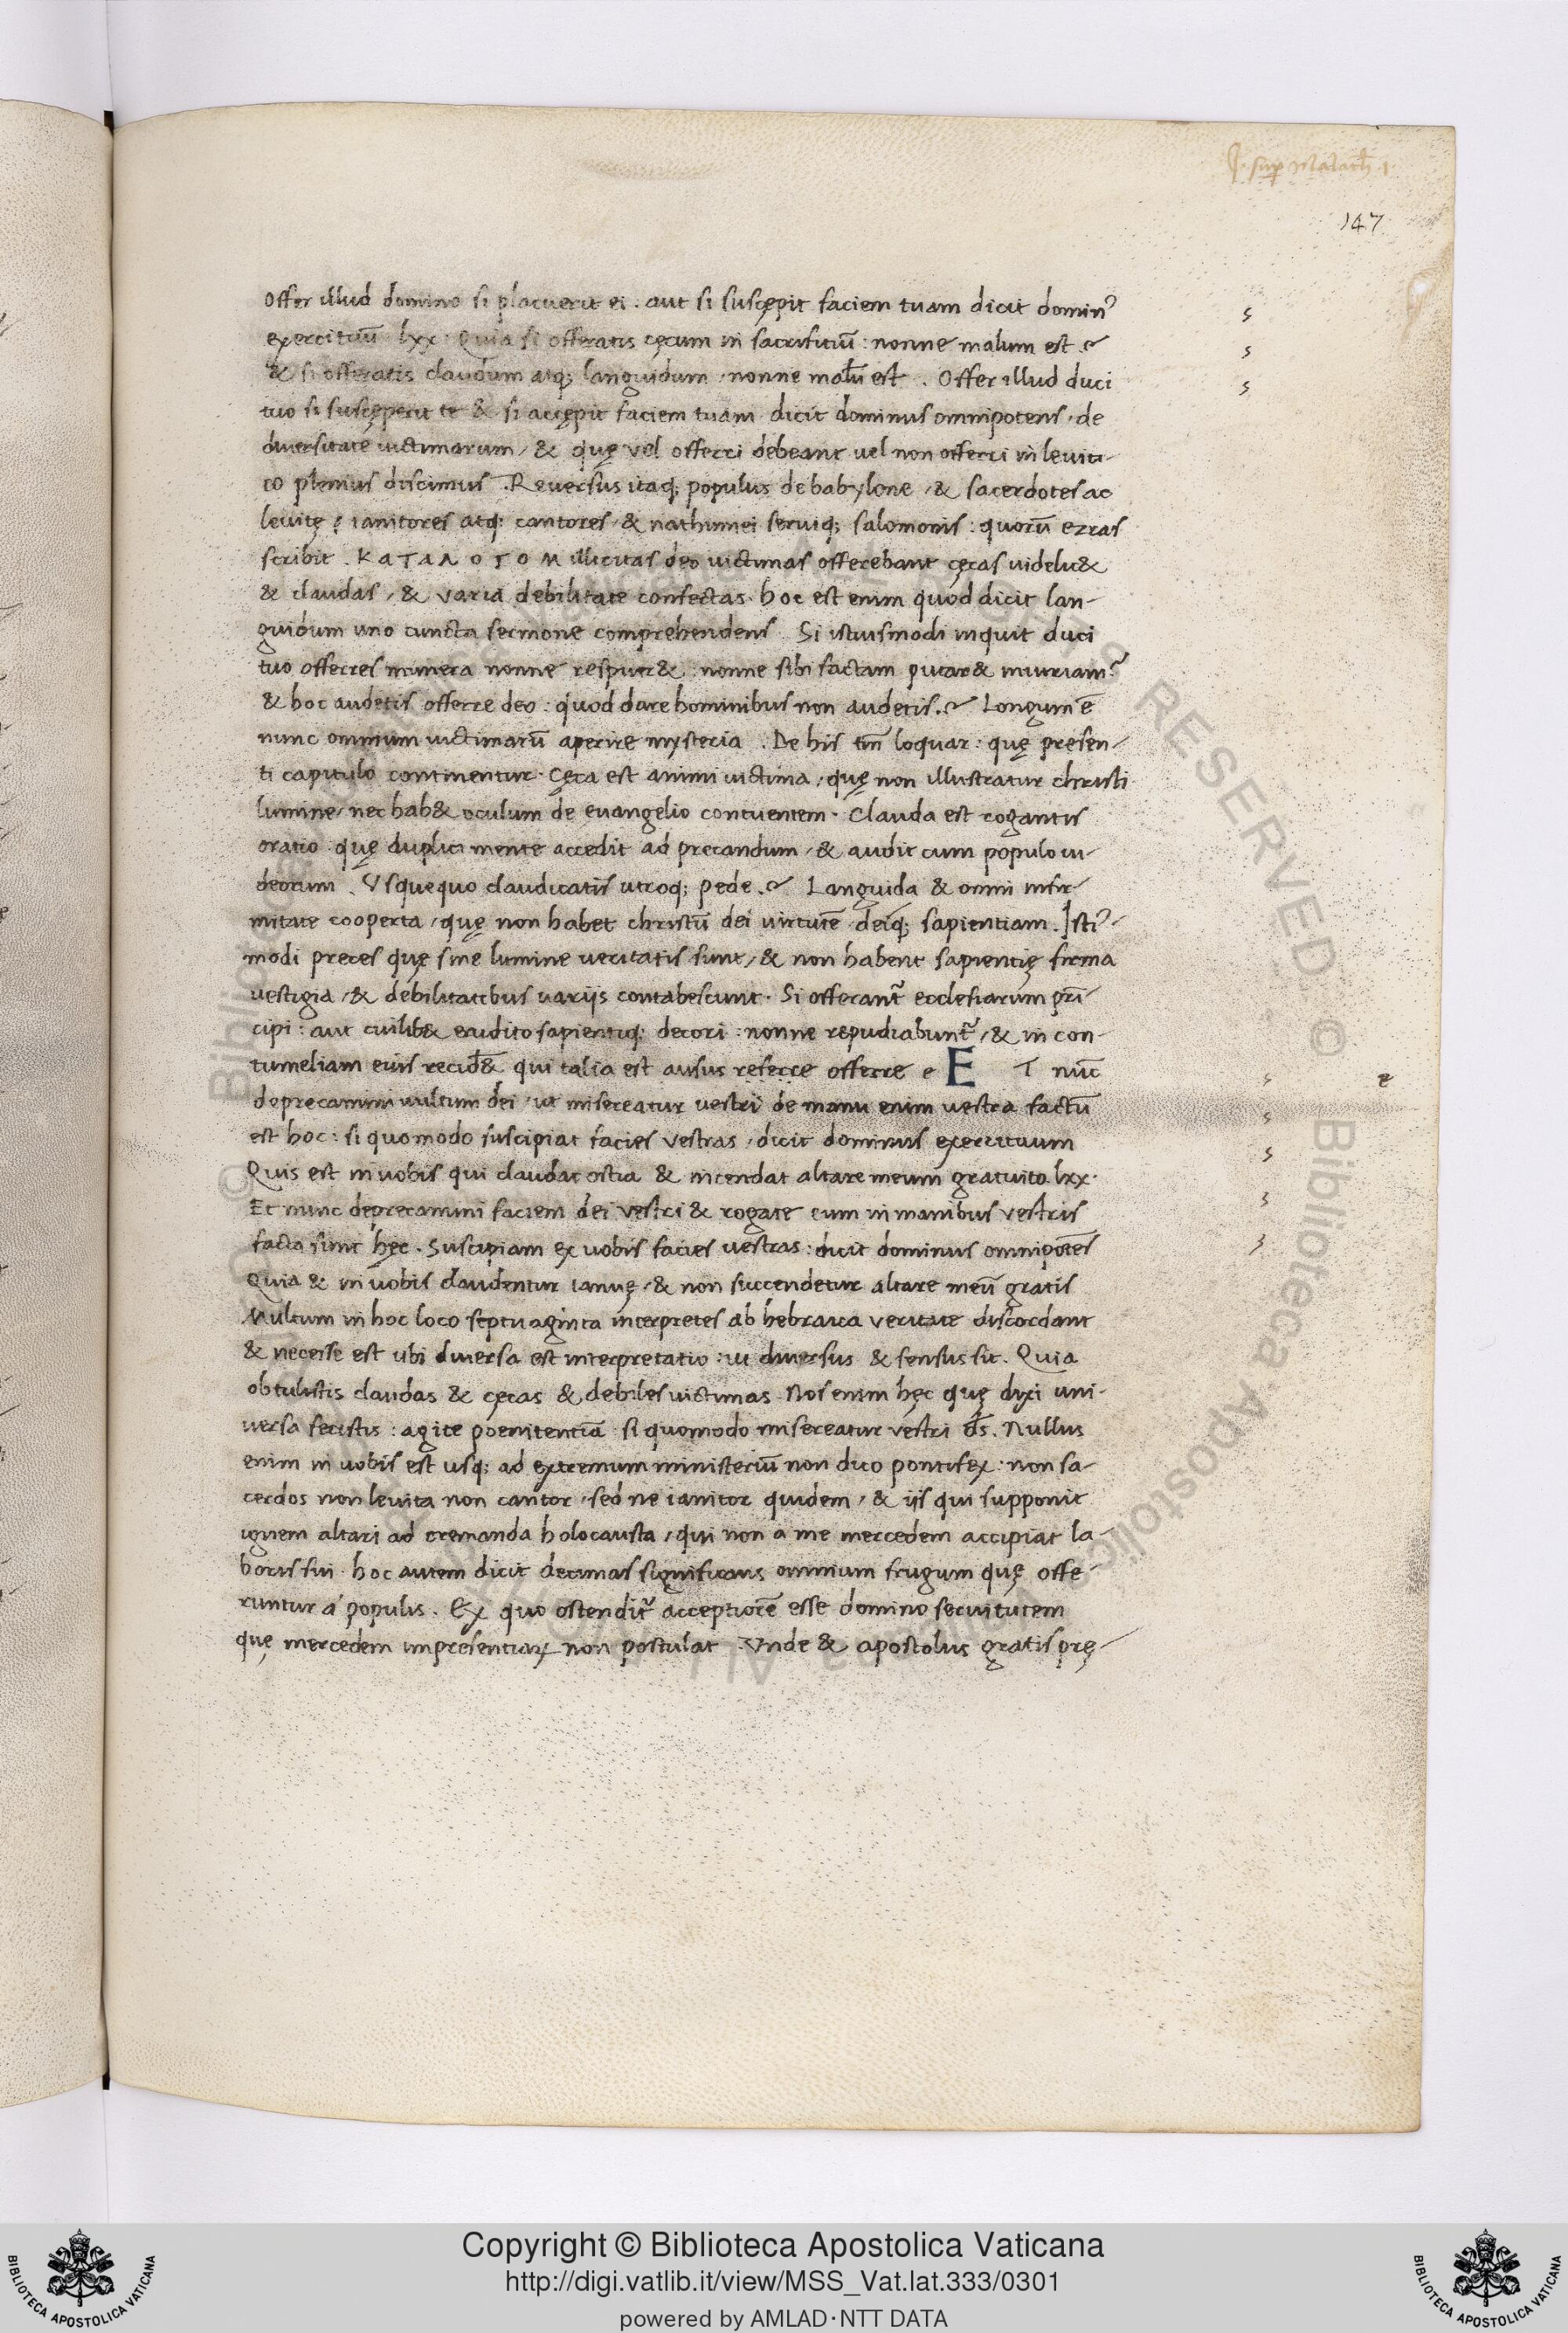 J. sup Malach 1.
147
Offer illud domino si placuerit ei . aut si suscępit faciem tuam dicit domin᾿
exercituū lxx : Quia si offeratis cęcum in sacrifitiū : nonne malum est .
& si offeratis claudum atq; languidum , nonne malū est . Offer illud duci
tuo si suscęperit te & si accępit faciem tuam dicit dominus omnipotens , de
diversitate uictimarum , & quę vel offerri debeant uel non offerri in leuiti-
co plenius discimus . Reuersus itaq; populus de babylone , & sacerdotes ac
leuitę ; ianitores atq; cantores , & nathinnei seruiq; salomonis : quorū ezras
scribit . ΚΑΤΑΛΟΓΟΝ illicitas deo uictimas offerebant cęcas uidelic&
& claudas , & varia debilitate confectas . hoc est enim quod dicit lan-
guidum uno cuncta sermone comprehendens . Si istiusmodi inquit duci
tuo offerres munera nonne respuer& : nonne sibi factam putar& iniuriam ?
& hoc audetis offerre deo : quod dare hominibus non audetis . Longum ē
nunc omnium uictimarū aperire mysteria . De his tm̄ loquar : quę presen-
ti capitulo continentur . Cęca est animi uictima , quę non illustratur christi
lumine , nec hab& oculum de euangelio contuentem . Clauda est rogantis
oratio quę duplici mente accedit ad precandum , & audit cum populo iu-
deorum . Vsquequo claudicatis utroq; pede . Languida & omni infir
mitate cooperta , quę non habet christū dei uirtutē deiq; sapientiam . Isti᾿-
modi preces quę sine lumine ueritatis sunt , & non habent sapientię firma
vestigia , & debilitatibus uariis contabescunt . Si offerant᾿ ecclesiarum prī
cipi : aut cuilib& erudito sapientiq; decori : nonne repudiabunt᾿ , & in con-
tumeliam eius recid& qui talia est ausus referre offerre e ET nūc
deprecamini uultum dei , ut misereatur uestri de manu enim uestra factū
est hoc : si quomodo suscipiat facies vestras , dicit dominus exercituum
Quis est in uobis qui claudat ostia & incendat altare meum gratuito lxx .
Et nunc deprecamini faciem dei vestri & rogate eum in manibus vestris
facta sunt hęc . Suscipiam ex uobis facies uestras : dicit dominus omnipotēs
Quia & in uobis claudentur ianuę , & non succendetur altare meū gratis
Multum in hoc loco septuaginta interpretes ab hebraica veritate discordant
& necesse est ubi diuersa est interpretatio : ut diuersus & sensus sit . Quia
obtulistis claudas & cęcas & debiles uictimas . Nos enim hęc quę dixi uni-
uersa fecistis : agite poenitentiā si quomodo misereatur vestri ds̄ . Nullus
enim in uobis est usq; ad extremum ministeriū non dico pontifex : non sa-
cerdos non leuita non cantor , sed ne ianitor quidem , & iis qui supponit
ignem altari ad cremanda holocausta , qui non a me mercedem accipiat la-
boris sui . hoc autem dicit decimas significans omnium frugum quę offe-
runtur á populis . Ex quo ostendit᾿ acceptiorē esse domino seruitutem
quę mercedem impresentiaꝝ non postulat . Vnde & apostolus gratis prę-
Copyright © Biblioteca Apostolica Vaticana
http://digi.vatlib.it/view/MSS_Vat.lat.333/0301
powered by AMLAD·NTT DATA
BIBLIOTECA APOSTOLICA VATICANA
BIBLIOTECA APOSTOLICA VATICANA